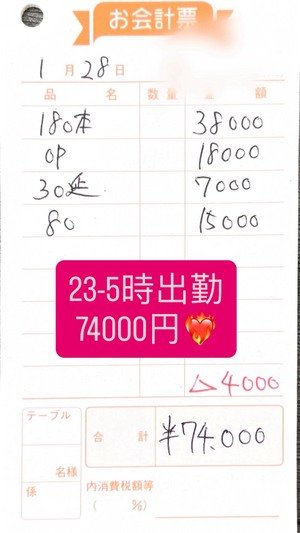 お会計票
1月28日
品名 数量 金額
180本 38000
OP 18000
30延 7000
80 15000
23-5時出勤
74000円❤️‍🔥
△4000
テーブル
名様
係
合計 ¥74,000
内消費税額等
( %)